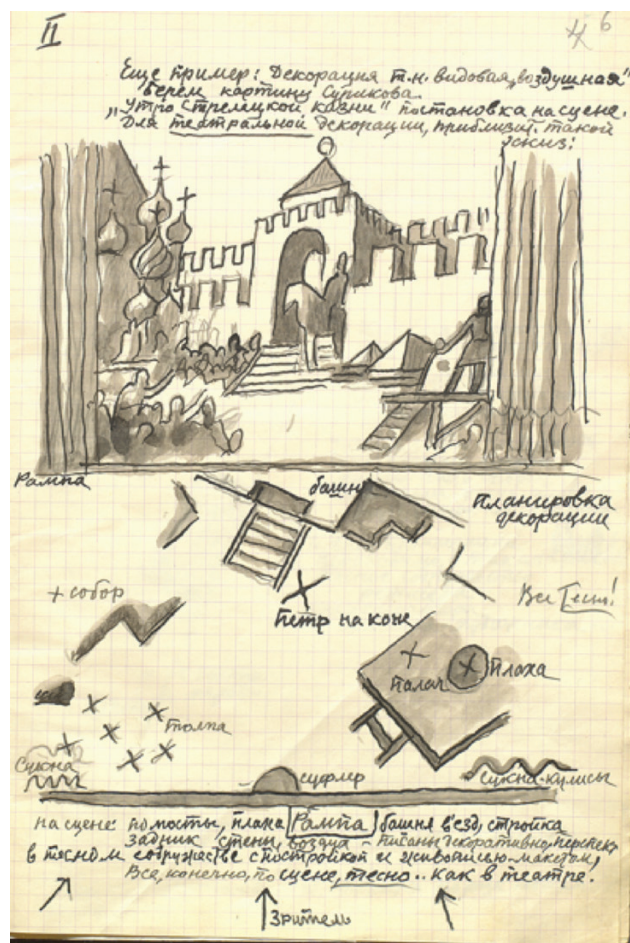 II
6
Еще пример: Декорация т.н. видовая "воздушная"
берем картину Сурикова
"Утро стрелецкой казни" постановка на сцене.
Для театральной декорации, приблизит. такой
эскиз:
Рампа
башня
Планировка
декорации
+ собор
Петр на коне
Все Тесин!
палач
плаха
толпа
Сукна
суфлер
Сукна-кулисы
на сцене помосты, плаха Рампа башня в'езд, стройка
задник стены, воздух - писаны декоративно, перспек,
в тесном содружестве с постройкой и живописью-макетом,
Все, конечно, по сцене, тесно.. Как в театре.
Зритель